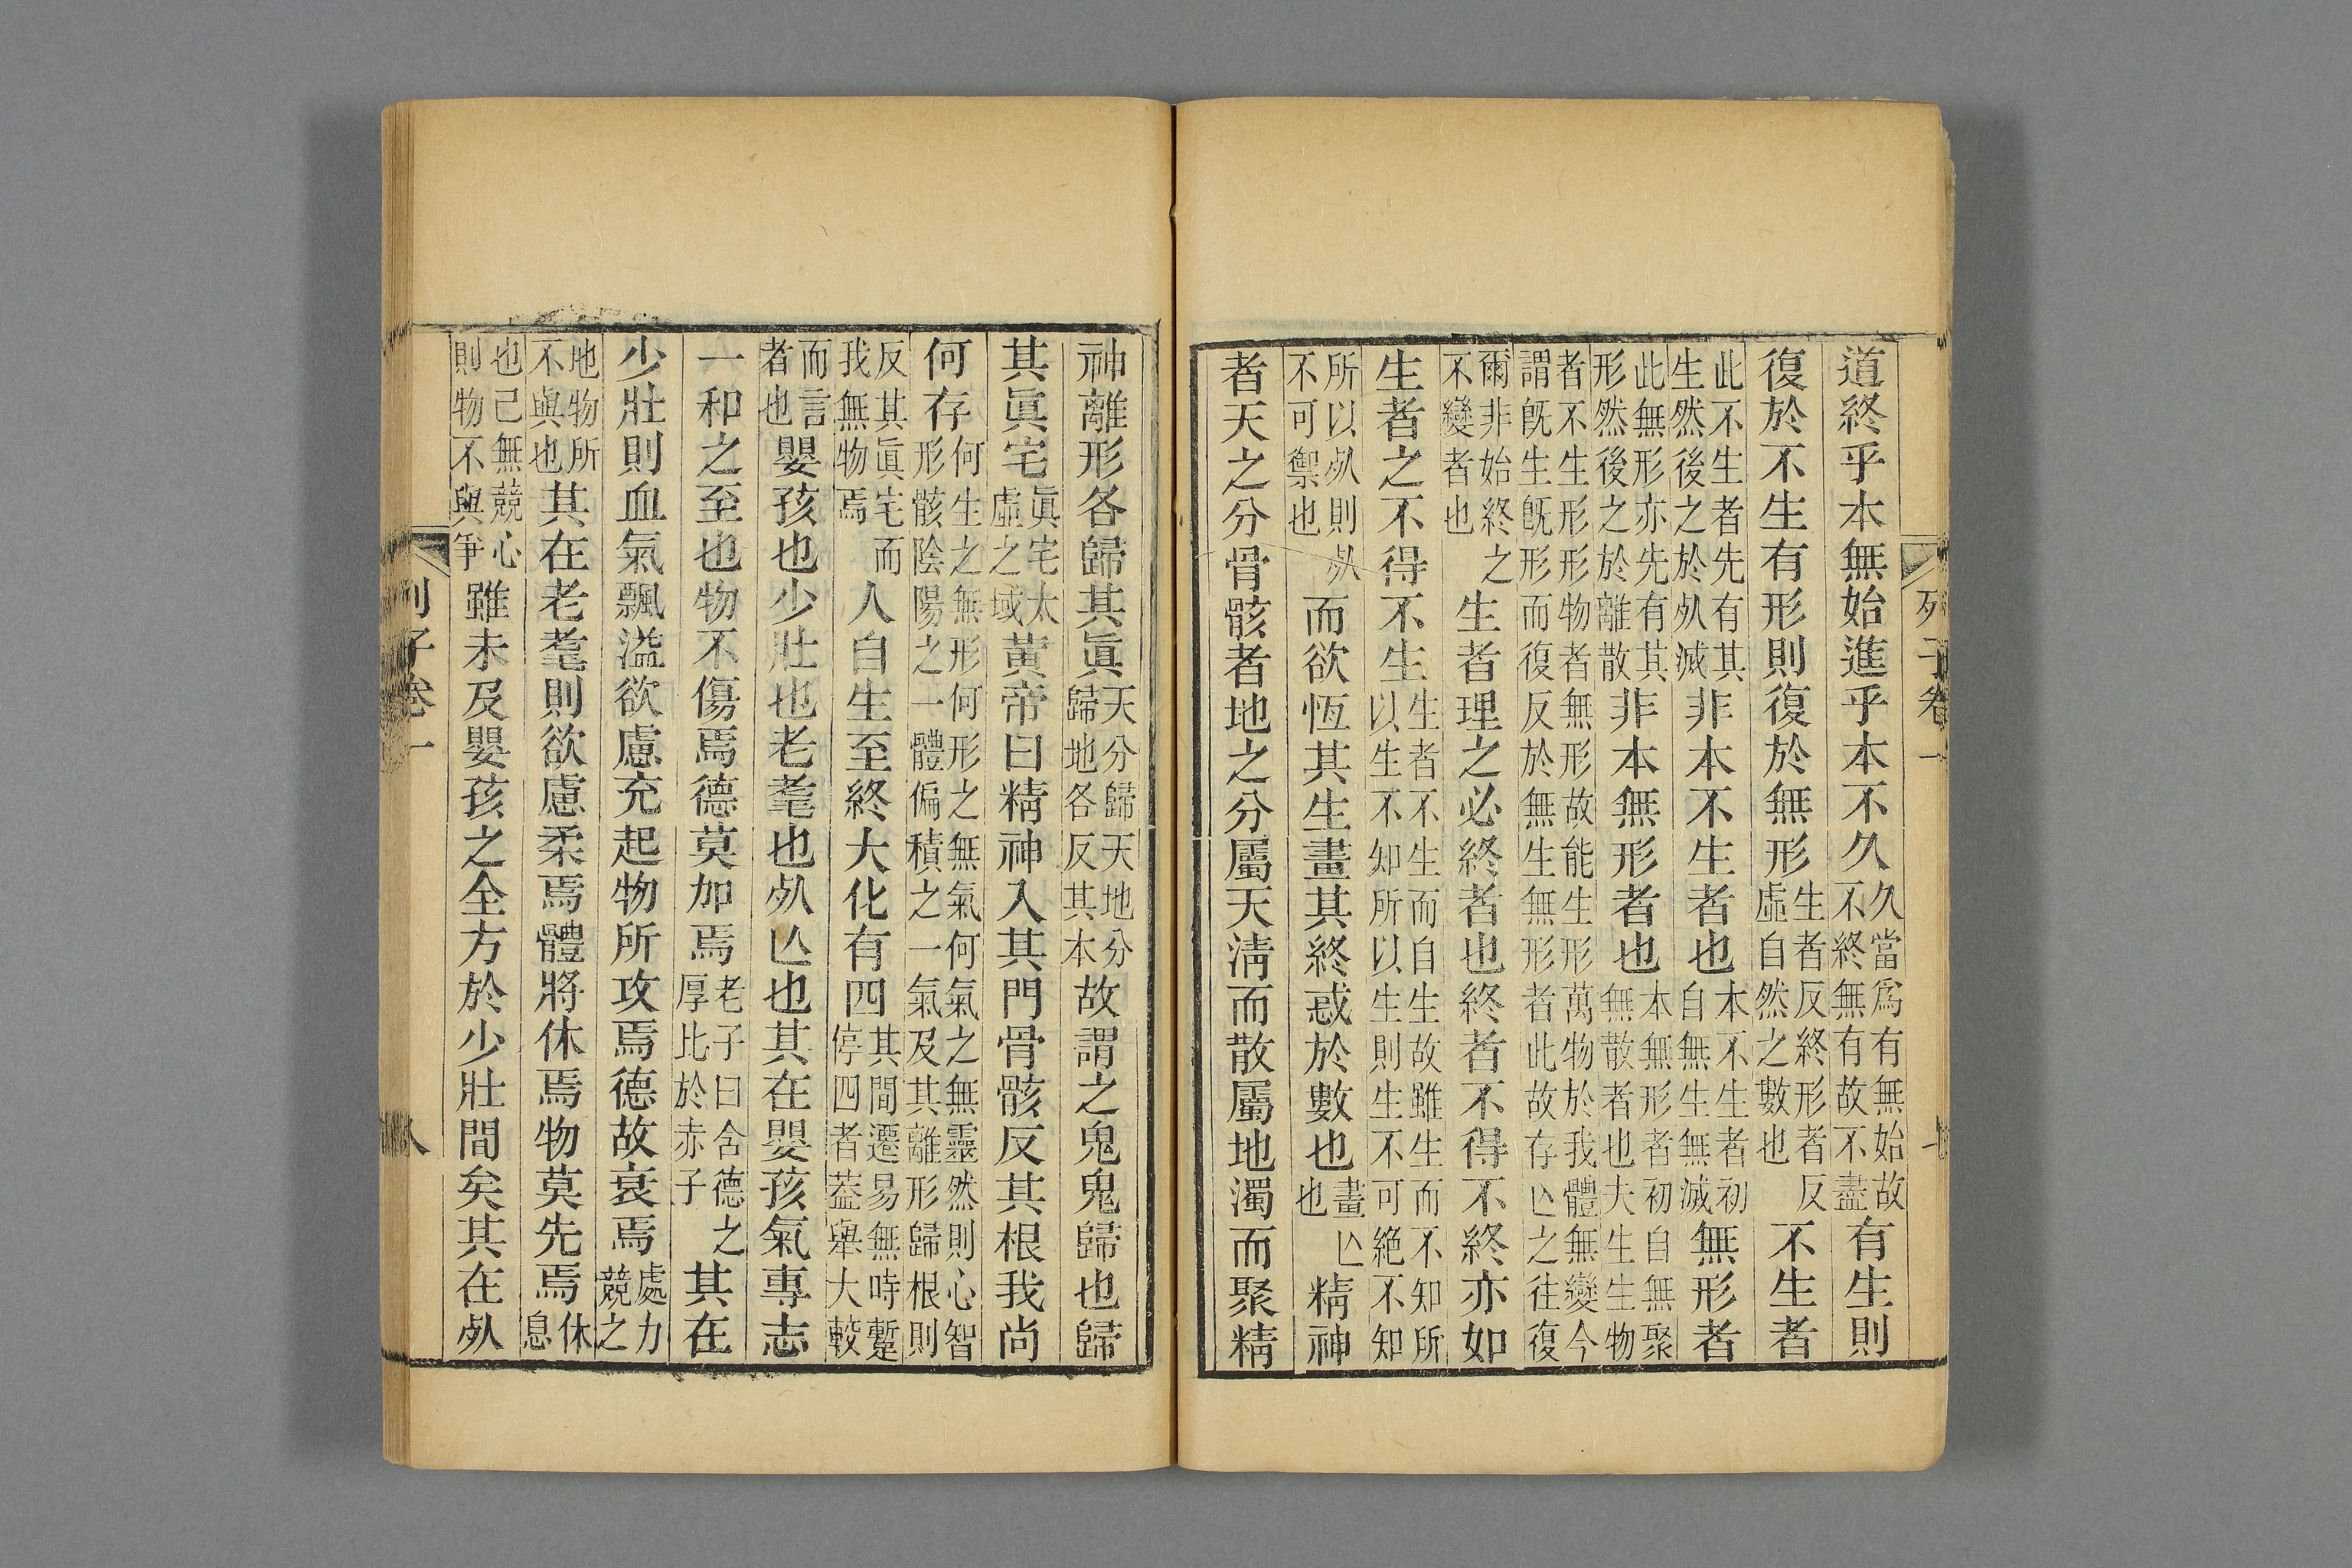 列子卷一 七
道終乎本無始進乎本不久久當爲有無始故不終無有故不盡有生則
復於不生有形則復於無形生者反終形者反虛自然之數也不生者
此不生者先有其生然後之於𣦸滅非本不生者也本不生者初自無生無滅無形者
此無形亦先有其形然後之於離散非本無形者也本無形者初自無聚無散者也夫生生物
者不生形形物者無形故能生形萬物於我體無變今謂旣生旣形而復反於無生無形者此故存亾之往復
爾非始終之不變者也生者理之必終者也終者不得不終亦如
生者之不得不生生者不生而自生故雖生而不知所以生不知所以生則生不可絕不知
所以𣦸則𣦸不可禦也而欲恆其生畫其終惑於數也畫亾也精神
者天之分骨骸者地之分屬天淸而散屬地濁而聚精
神離形各歸其眞天分歸天地分歸地各反其本故謂之鬼鬼歸也歸
其眞宅眞宅太虛之域黃帝曰精神入其門骨骸反其根我尚
何存何生之無形何形之無氣何氣之無靈然則心智形骸陰陽之一體偏積之一氣及其離形歸根則
反其眞宅而我無物焉人自生至終大化有四其間遷易無時蹔停四者葢舉大較
而言者也嬰孩也少壯也老耄也𣦸亾也其在嬰孩氣專志
一和之至也物不傷焉德莫加焉老子曰含德之厚比於赤子其在
少壯則血氣飄溢欲慮充起物所攻焉德故衰焉處力競之
地物所不與也其在老耄則欲慮柔焉體將休焉物莫先焉休息
也己無競心則物不與爭雖未及嬰孩之全方於少壯間矣其在𣦸
列子卷一 八